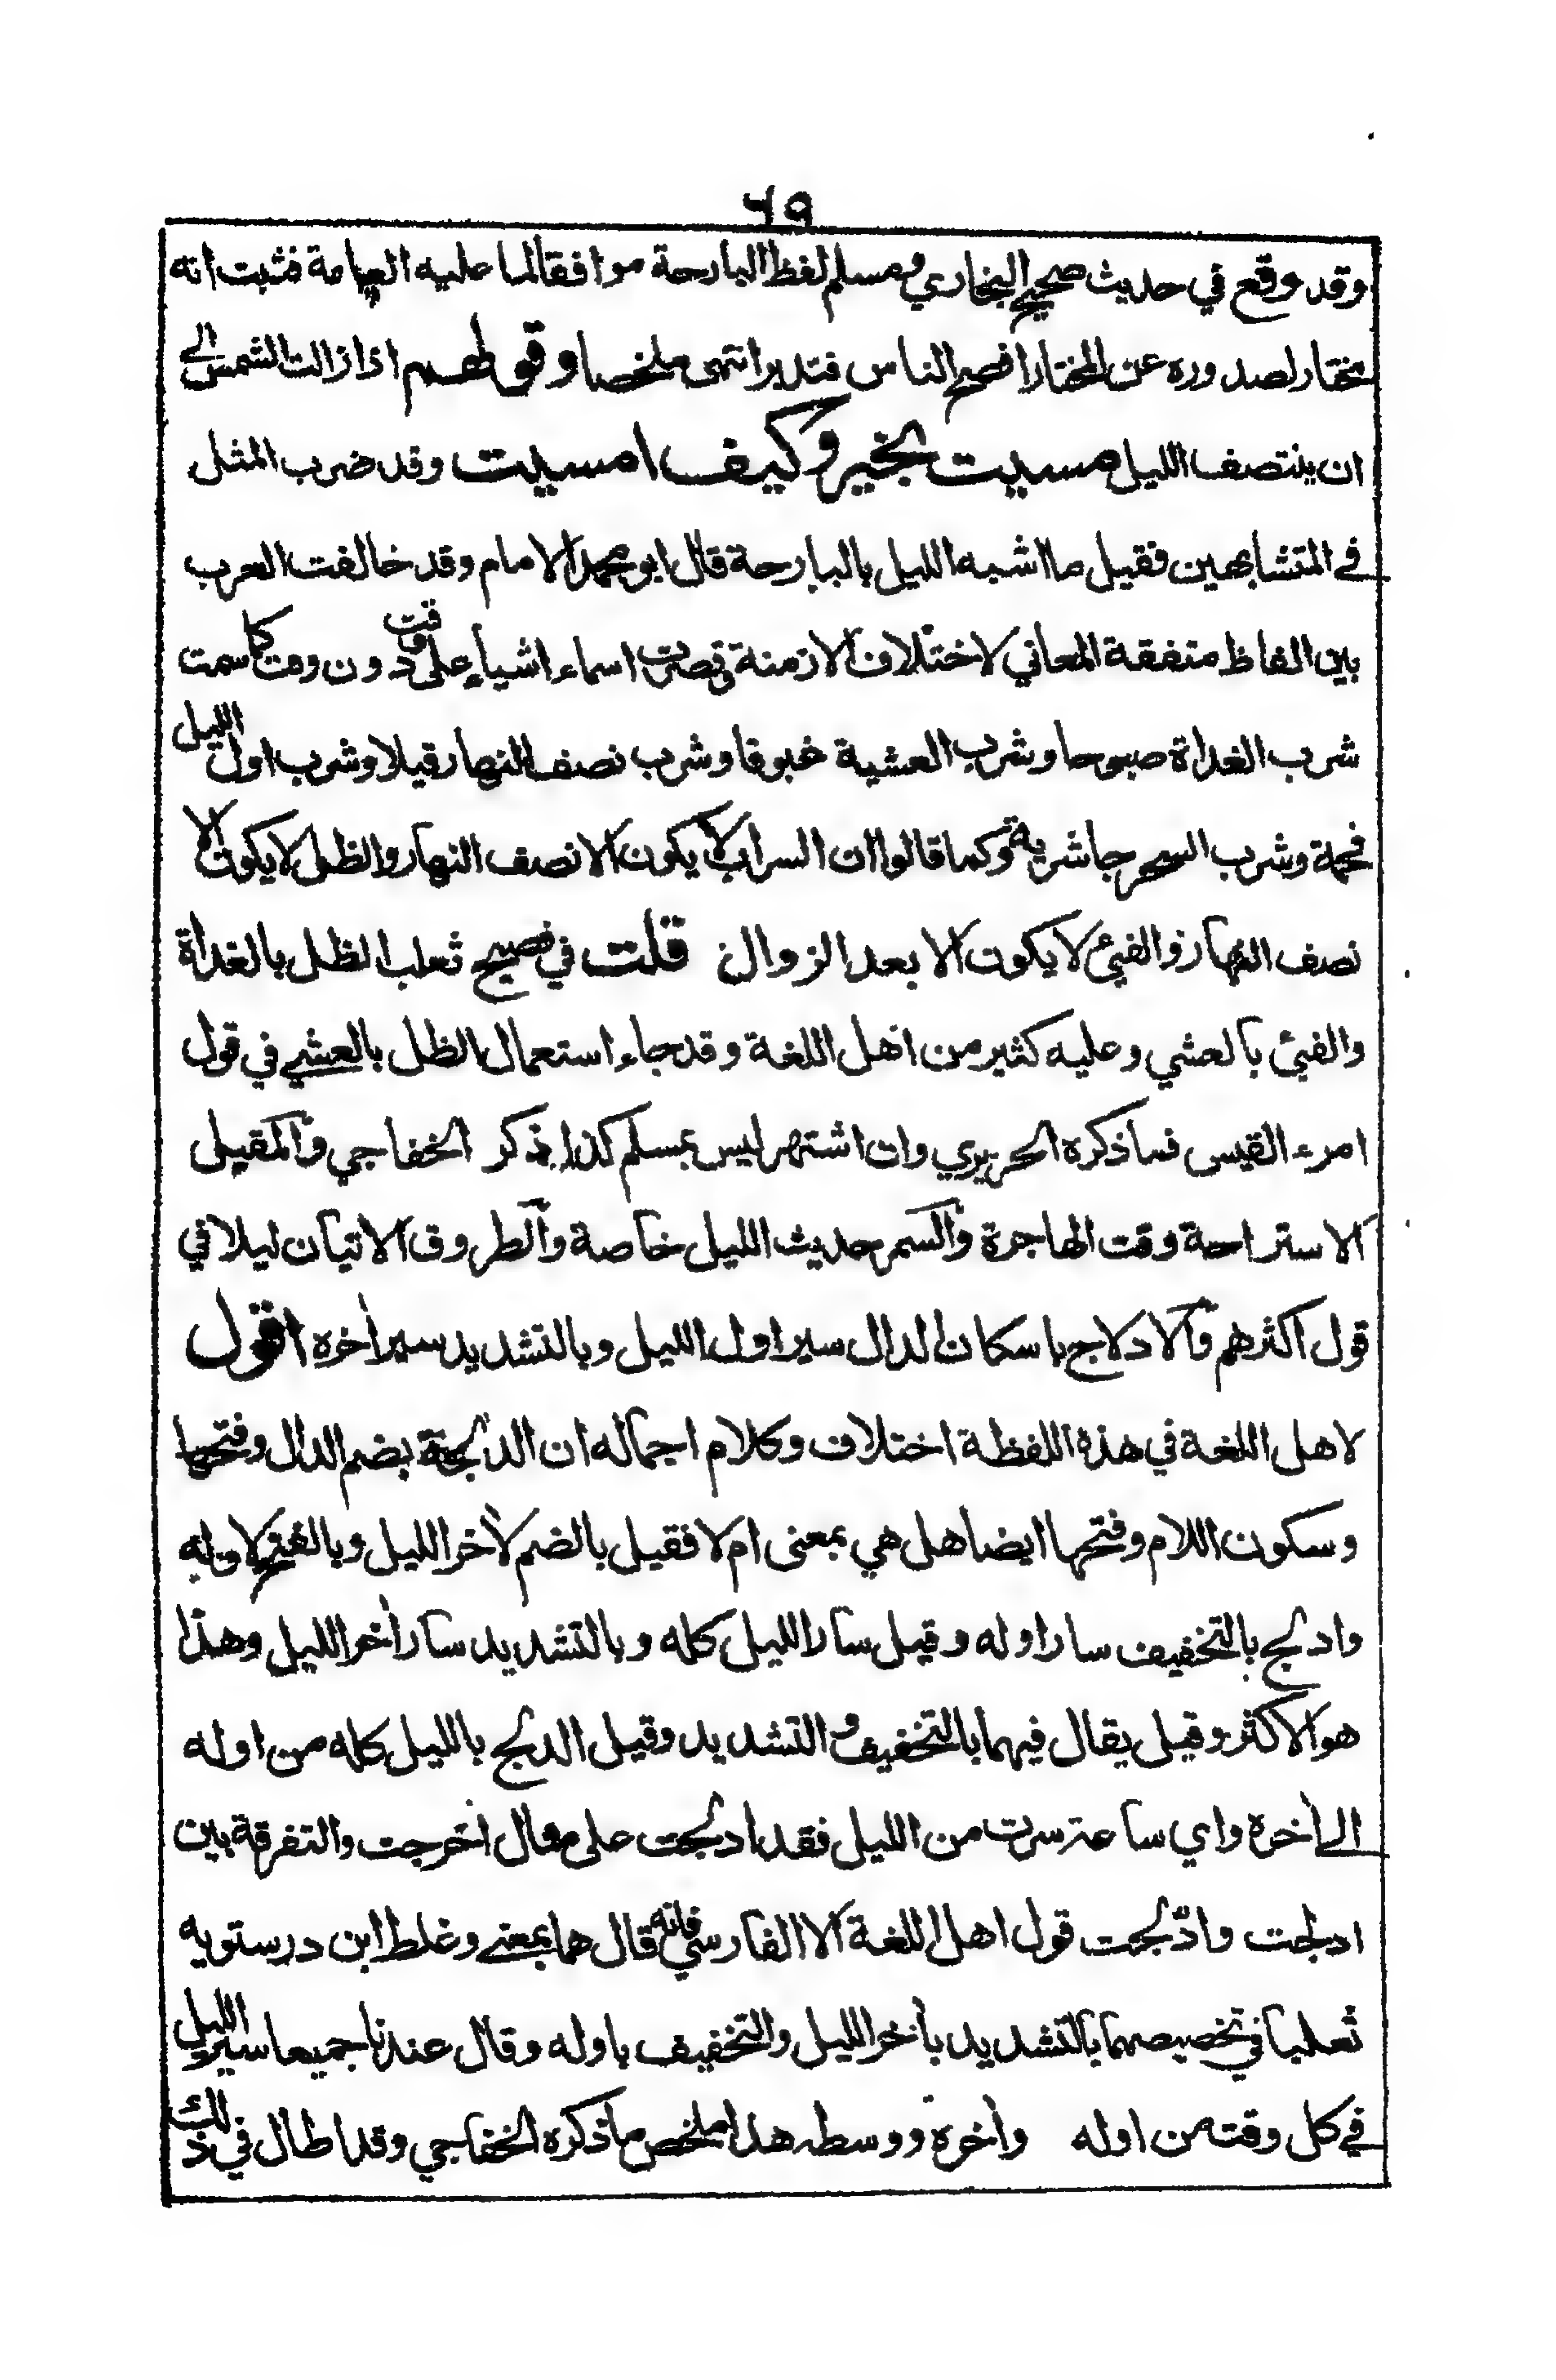 ٦٩
وقد وقع في حديث صحيح البخاري ومسلم لفظ البارحة موافقا لما عليه العامة فثبت انه
مختار لصدوره عن المختار افصح الناس فتدبر انتهى ملخصا وقولهم اذا زالت الشمس الى
ان ينتصف الليل مسيت بخير وكيف امسيت وقد ضرب المثل
في المتشابهين فقيل ما اشبه الليل بالبارحة قال ابو محمد الامام وقد خالفت العرب
بين الفاظ متفقة المعاني لاختلاف الازمنة وقصرت اسماء اشياء على وقت دون وقت كما سمت
شرب الغداة صبوحا وشرب العشية غبوقا وشرب نصف النهار قيلا وشرب اول الليل
فحمة وشرب السحر جاشرية وكما قالوا ان السراب لا يكون الا نصف النهار والظل لا يكون الا
نصف النهار والفيئ لا يكون الا بعد الزوال قلت في فصيح ثعلب الظل بالغداة
والفيئ بالعشي وعليه كثير من اهل اللغة وقد جاء استعمال الظل بالعشي في قول
امرء القيس فما ذكره الحريري وان اشتهر ليس بمسلم كذا ذكر الخفاجي والمقيل
الاستراحة وقت الهاجرة والسمر حديث الليل خاصة والطروق الاتيان ليلا في
قول اكثرهم والادلاج باسكان الدال سير اول الليل وبالتشديد سير أخره اقول
لاهل اللغة في هذه اللفظة اختلاف وكلام اجماله ان الدلجة بضم الدال وفتحها
وسكون اللام وفتحها ايضا هل هي بمعنى ام لا فقيل بالضم لأخر الليل وبالفتح لاوله
وادلج بالتخفيف سار اوله وقيل سار الليل كله وبالتشديد سار أخر الليل وهذا
هو الاكثر وقيل يقال فيهما بالتخفيف والتشديد وقيل الدلج بالليل كله من اوله
الى أخره واي ساعة سرت من الليل فقد ادلجت على مثال اخرجت والتفرقة بين
ادلجت وادّلجت قول اهل اللغة الا الفارسي فانه قال هما بمعنى وغلط ابن درستويه
ثعلبا في تخصيصهما بالتشديد بأخر الليل والتخفيف باوله وقال عندنا جميعا سير الليل
في كل وقت من اوله وأخره ووسطه هذا ملخص ما ذكره الخفاجي وقد اطال في ذلك